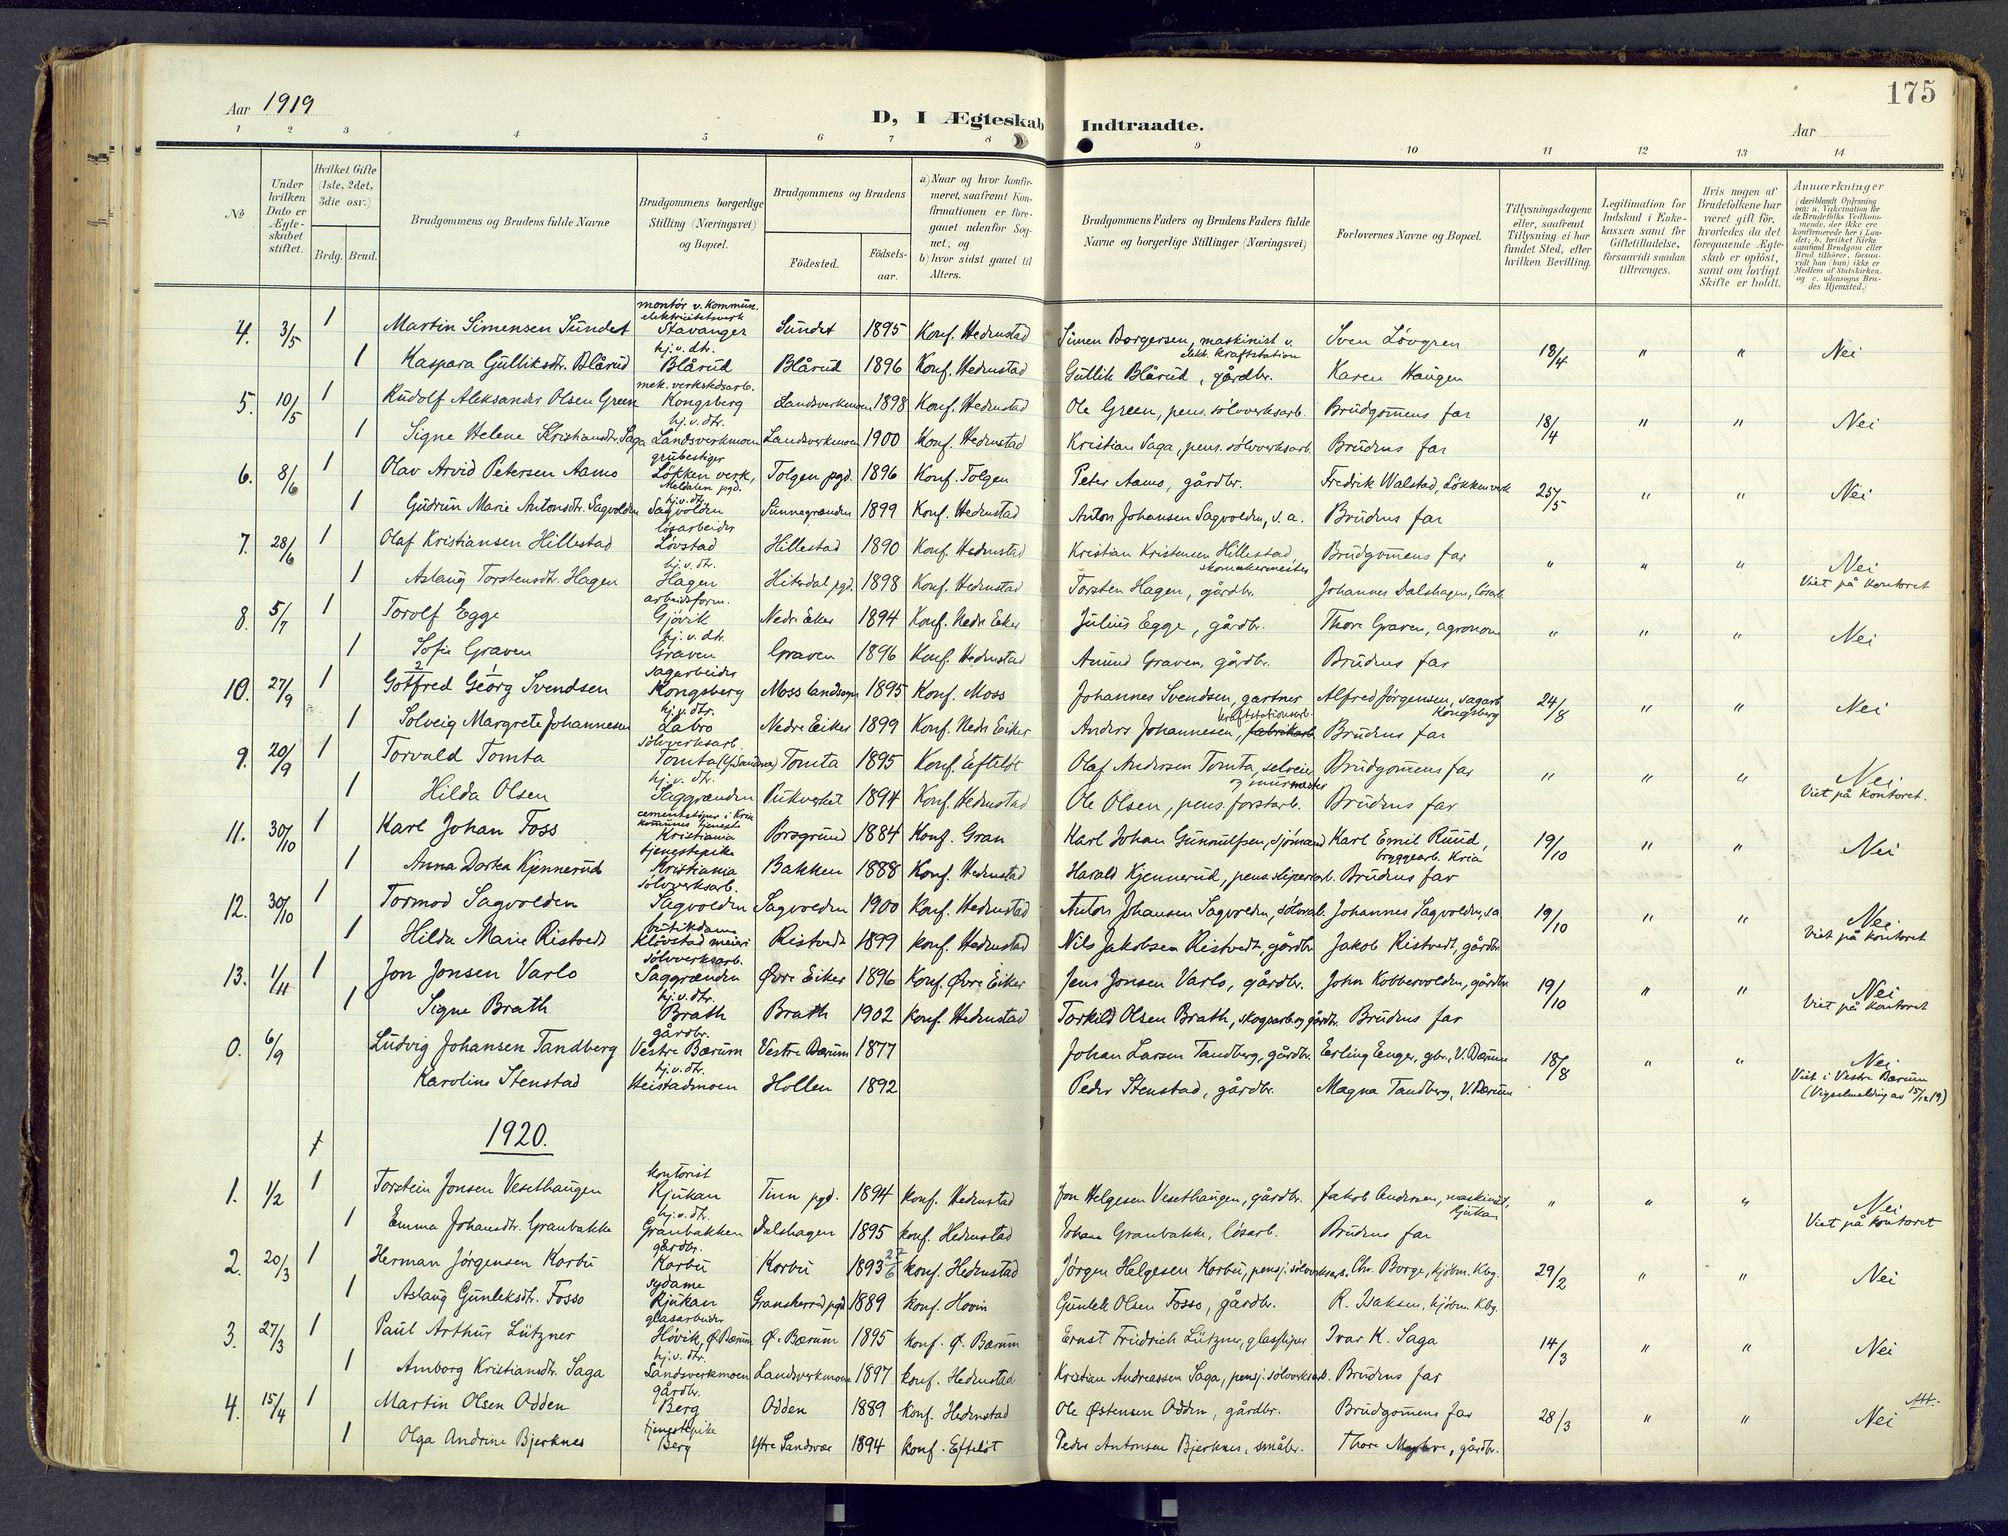 Aar 1919
D, I Ægteskab Indtraadte.
Aar
175
1 2 3 4 5 6 7 8 9 10 11 12 13 14
No
Under hvilken Dato er Ægteskabet stiftet.
Hvilket Gifte (1ste, 2det, 3die osv.)
Brdg. Brud.
Brudgommens og Brudens fulde Navne
Brudgommens borgerlige Stilling (Næringsvei) og Bopæl.
Brudgommens og Brudens
Fødested. Fødselsaar.
a) Naar og hvor konfirmeret, saafremt Konfirmationen er foregaaet udenfor Sognet, og
b) hvor sidst gaaet til Alters.
Brudgommens Faders og Brudens Faders fulde Navne og borgerlige Stillinger (Næringsvei)
Forlovernes Navne og Bopæl.
Tillysningsdagene eller, saafremt Tillysning ei har fundet Sted, efter hvilken Bevilling.
Legitimation for Indskud i Enkekassen samt for Giftetilladelse, forsaavidt saadan tiltrænges.
Hvis nogen af Brudefolkene har været gift før, hvorledes da det foregaaende Ægteskab er opløst, samt om lovligt Skifte er holdt.
Anmærkninger (deriblandt Oplysning om: a. Vakcination for de Brudefolks Vedkommende, der ikke ere konfirmerede her i Landet; b. hvilket Kirkesamfund Brudgom eller Brud tilhører, forsaavidt han (hun) ikke er Medlem af Statskirken, og c. udensogns Brudes Hjemsted.)
4. 3/5 1 Martin Simensen Sundet montør v. kommun. elektricitetsverk Stavanger Sundet 1895 Konf. Hedenstad Simen Borgersen, maskinist v. elekt. kraftstation Sven Lövgren 18/4 " " Nei
1 Kaspara Gulliksdtr. Blårud hj.v.dtr. Blårud Blårud 1896 Konf. Hedenstad Gullik Blårud, gårdbr. Karen Haugen
5. 10/5 1 Rudolf Aleksander Olsen Green mek. verkstedsarb. Kongsberg Landsverkmoen 1898 Konf. Hedenstad Ole Green, pens. sölvverksarb. Brudgommens far 18/4 " " Nei
1 Signe Helene Kristiansdtr. Saga hj.v.dtr. Landsverkmoen Landsverkmoen 1900 Konf. Hedenstad Kristian Saga, pens. sölvverksarb. Brudens far
6. 8/6 1 Olav Arvid Petersen Aamo grubestiger Løkken verk, Meldalen pgd. Tolgen pgd. 1896 Konf. Tolgen Peter Aamo, gårdbr. Fredrik Walstad, Løkken verk 25/5 " " Nei
1 Gudrun Marie Antonsdtr. Sagvolden hj.v.dtr. Sagvolden Sunnegrænden 1899 Konf. Hedenstad Anton Johansen Sagvolden, s.a. Brudens far
7. 28/6 1 Olaf Kristiansen Hillestad lösarbeider Lövstad Hillestad 1890 Konf. Hedenstad Kristian Kristensen Hillestad, skomakermester Brudgommens far " " " Nei Viet på kontoret
1 Aslaug Torstensdtr. Hagen hj.v.dtr. Hagen Hiterdal pgd. 1898 Konf. Hedenstad Torsten Hagen, gårdbr. Johannes Dalshagen, lösarb.
8. 5/7 1 Torolf Egge arbeidsform. Gjövik Nedre Eiker 1894 Konf. Nedr Eiker Julius Egge, gårdbr. Thore Graven, agronom " " " Nei
1 Sofie Graven hj.v.dtr. Graven Graven 1896 Konf. Hedenstad Amund Graven, gårdbr. Brudens far
10. 27/9 1 2 1 Gotfred Georg Svendsen sagarbeider Kongsberg Moss landsogn 1895 Konf. Moss Johannes Svendsen, gartner Alfred Jørgensen, sagarb. Kongsberg 24/8 " " Nei
1 Solveig Margrete Johannesen hj.v.dtr. Labro Nedre Eiker 1899 Konf. Nedr Eiker Anders Johannesen, kraftstationsarb. fabrikarb. Brudens far
9. 20/9 1 Torvald Tomta sölvverksarb. Tomta Tomta 1895 Konf. Efteløt Olaf Andersen Tomta, selveier og murmester Brudgommens far " " " Nei Viet på kontoret.
1 Hilda Olsen hj.v.dtr. Saggrænden Pukverket 1894 Konf. Hedenstad Ole Olsen, pens. forstarb. Brudens far
11. 30/10 1 Karl Johan Foss cementstøper i Kria kommunes tjeneste Kristiania Porsgrund 1884 Konf. Gran Karl Johan Gunnulfsen, sjømand Karl Emil Ruud, bryggearb. Kria 19/10 " " Nei
1 Anna Dorka Kjennerud tjenestepike Kristiania Bakken 1888 Konf. Hedenstad Harald Kjennerud, pens. sliperarb. Brudens far
12. 30/10 1 Tormod Sagvolden sölvverksarb. Sagvolden Sagvolden 1900 Konf. Hedenstad Anton Johansen Sagvolden, sölvarb. Johannes Sagvolden, sa. 19/10 " " Nei Viet på kontoret
1 Hilda Marie Ristvedt butikdame Kløvstad meieri Ristvedt 1899 konf. Hedenstad Nils Jakobsen Ristvedt, gårdbr. Jakob Ristvedt, gårdbr.
13. 1/11 1 Jon Jonsen Varlo sölvverksarb. Saggrænden Øvre Eiker 1896 Konf. Øvre Eiker Jens Jonsen Varlo, gårdbr. John Kobbervolden, gårdbr. 19/10 " " Nei Viet på kontoret
1 Signe Brath hj.v.dtr. Brath Brath 1902 konf. Hedenstad Torkild Olsen Brath, skogsarb. og gårdbr. Brudens far
0. 6/9 Ludvig Johansen Tandberg gårdbr. Vestre Bærum Vestre Bærum 1877 Johan Larsen Tandberg, gårdbr. Erling Enger, gbr., V. Bærum 18/8 " " Nei Viet i Vestre Bærum (Vigselmelding av 15/12 19)
Karoline Stenstad hj.v.dtr. Heistadmoen Hollen 1892 Peder Stenstad, gårdbr. Magna Tandberg, V. Bærum
1920.
1. 1/2 1 Torstein Jonsen Vesethaugen kontorist Rjukan Tinn pgd. 1894 konf. Hedenstad Jon Helgesen Vesethaugen, gårdbr. Jakob Andersen, maskinist, Rjukan " " " Nei Viet på kontoret
1 Emma Johansdtr. Granbakke hj.v.dtr. Granbakken Dalshagen 1895 konf. Hedenstad Johan Granbakke, lösarb. Brudens far
2. 20/3 1 Herman Jørgensen Korbu gårdbr. Korbu Korbu 1893 27/6 konf. Hedenstad Jørgen Helgesen Korbu, pensj. sölvverksarb. Chr. Borge, kjøbm. Kbg. 29/2 " " Nei
1 Aslaug Gunleksdtr. Fosso sydame Rjukan Gransherred pgd 1889 konf. Hovin Gunleik Olsen Fosso, gårdbr. R. Isaksen, kjøbm. Kbg.
3. 27/3 1 Paul Arthur Lützner glasarbeider Høvik, Ø. Bærum Ø. Bærum 1895 konf. Ø. Bærum Ernst Friedrich Lützner, glassliper Ivar K. Saga 14/3 " " Nei
1 Amborg Kristiansdtr. Saga hj.v.dtr. Landsverkmoen Landsverkmoen 1897 konf. Hedenstad Kristian Andreassen Saga, pensj. sölvverksarb. Brudens far
4. 15/4 1 Martin Olsen Odden gårdbr. Berg Odden 1889 konf. Hedenstad Ole Østensen Odden, gårdbr. Brudgommens far 28/3 " " Nei Att.
1 Olga Andrine Bjerknes tjenestepike Berg Ytre Sandsvær 1894 konf. Efteløt Peder Antonsen Bjerknes, småbr. Thore , gårdbr.